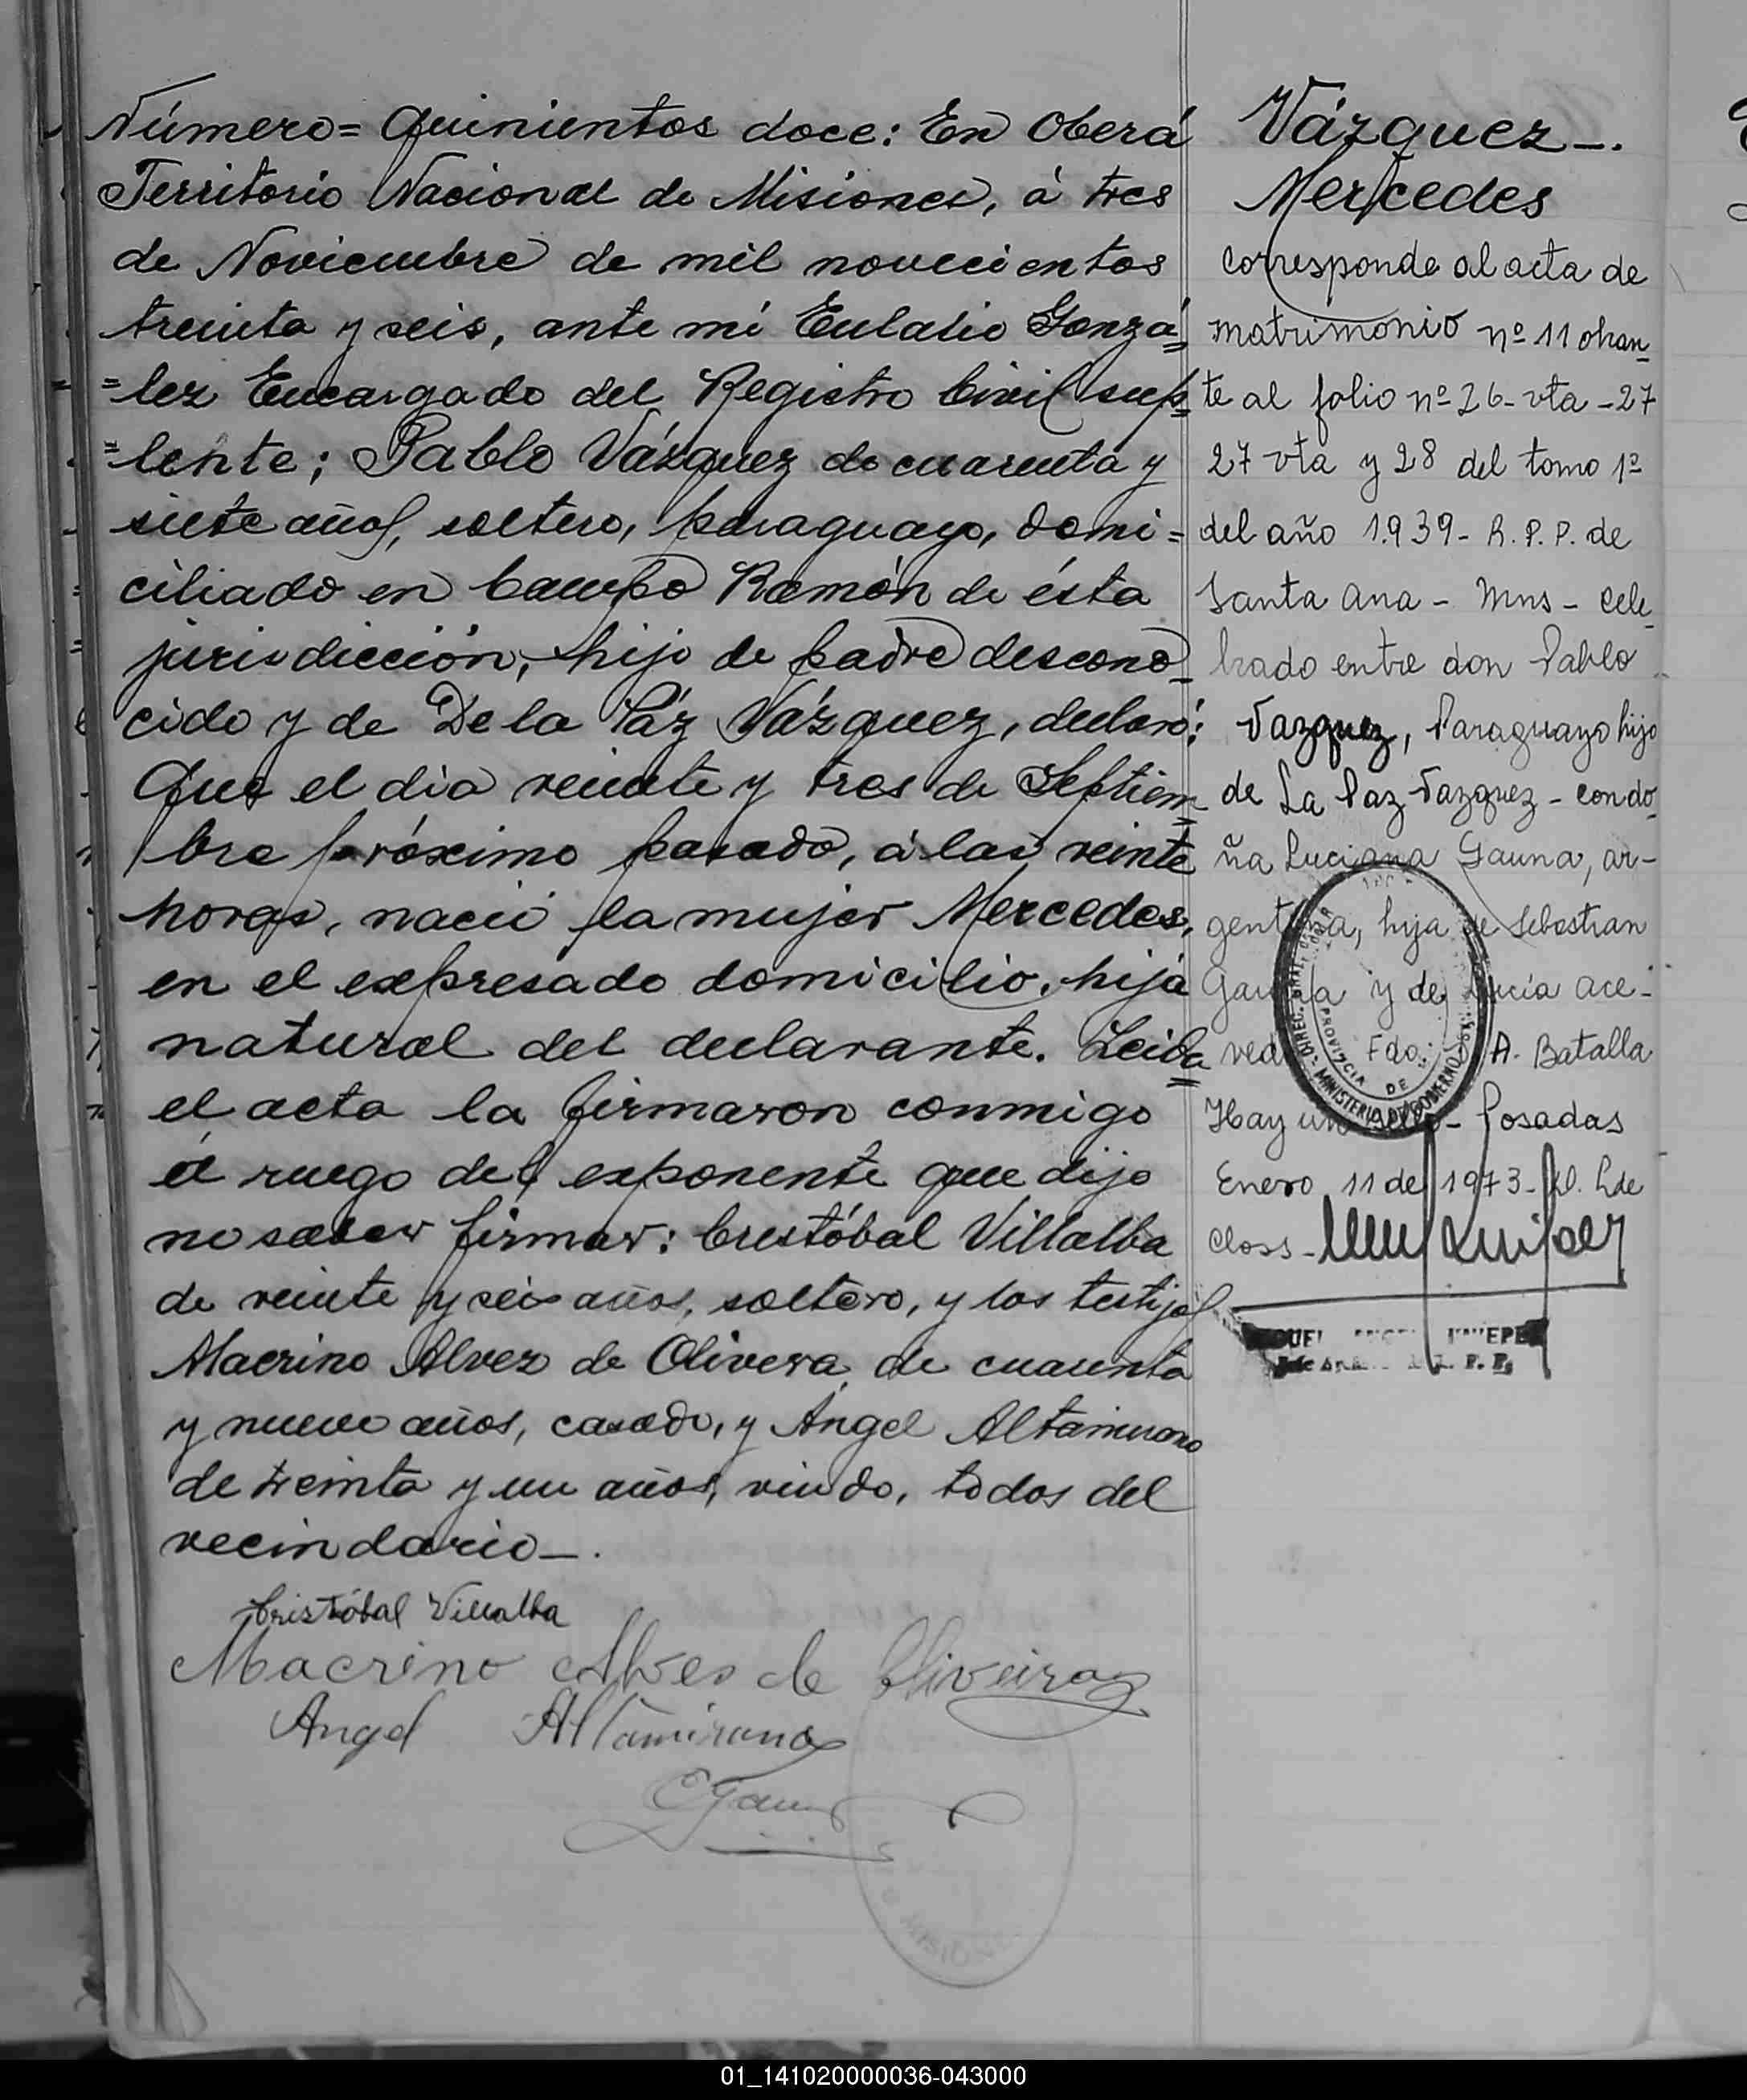 Número = Quinientos doce: En Oberá
Territorio Nacional de Misiones, á tres
de Noviembre de mil novecientos
treinta y seis, ante mí Eulalio Gonzá=
=lez Encargado del Registro Civil sup=
=lente; Pablo Vázquez de cuarenta y
siete años, soltero, paraguayo, domi=
ciliado en Campo Ramón de ésta
jurisdicción, hijo de padre descono_
cido y de De la Páz Vázquez, declaró:
Que el dia veinte y tres de Septiem=
bre próximo pasado, á las veinte
horas, nació la mujer Mercedes,
en el expresado domicilio, hija
natural del declarante. Leida
el acta la firmaron conmigo
á ruego del exponente que dijo
no saber firmar: Cristóbal Villalba
de veinte y seis años, soltero, y los testigos
Macrino Alvez de Olivera de cuarenta
y nueve años, casado, y Ángel Altamirano
de treinta y un años, viudo, todos del
vecindario_.
Cristóbal Villalba
Macrino Alves de Oliveira
Angel Altamirano
Vázquez_.
Mercedes
corresponde al acta de
matrimonio nº 11 obran_
te al folio nº 26-vta-27
27 vta y 28 del tomo 1º
del año 1.939- R.P.P. de
Santa Ana - Mns - cele_
brado entre don Pablo
Vazquez, Paraguayo hijo
de La Paz Vazquez - con do_
ña Luciana Gauna, ar-
gentina, hija de Sebastian
Gauna y de Lucía Ace-
ved Fdo: A. Batalla
Hay un sello - Posadas
Enero 11 de 1973- Pde
Closs-
DIREC. GRAL.
PROVINCIA DE
MINISTERIO DE GOBIERNO
MISIONES
01_141020000036-043000